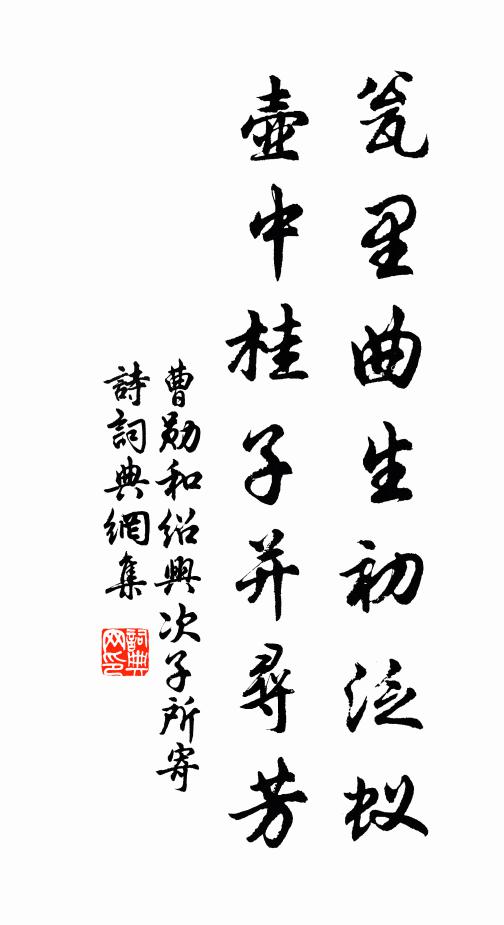 瓮里曲生初泛蚁
壶中桂子并尋芳
曹勋和绍興次子所寄
詩詞典網集
詞典网印